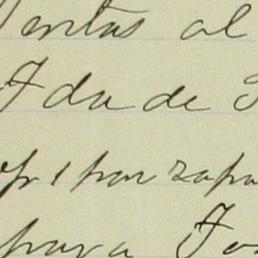 Ventas al
Ida de
1 par zapa
para Jo